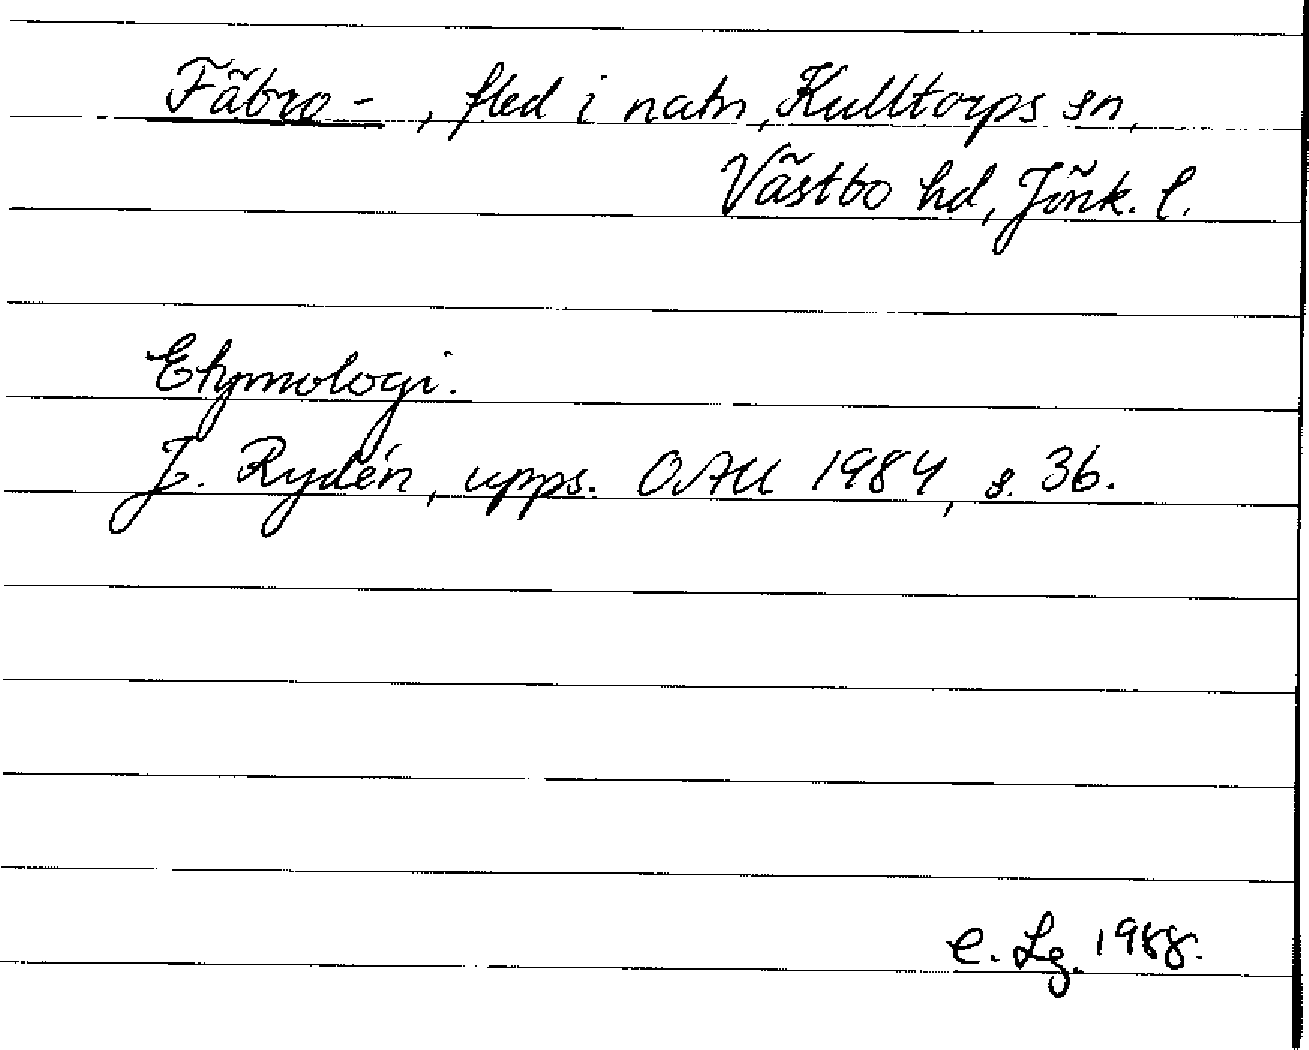 Fäbro-, fled i natn, Kulltorps sn,
Västbo hd, Jönk. l.
Etymologi.
J. Rydén, upps. OAU 1984, s. 36.
C. Lg. 1988.